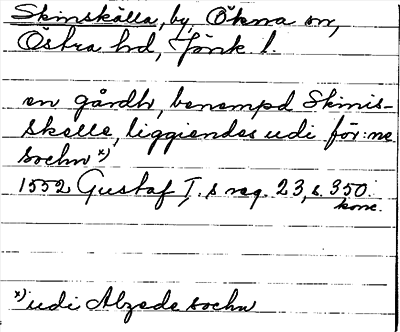 Skinskälla, by, Ökna sn,
Östra hd, Jönk l.
en gårdh, benempd Skinis-
skelle, liggiendes udi för:ne
sochn x)
1552 Gustaf I.s reg. 23, s. 350.
konc.
x) udi Alzede sochn